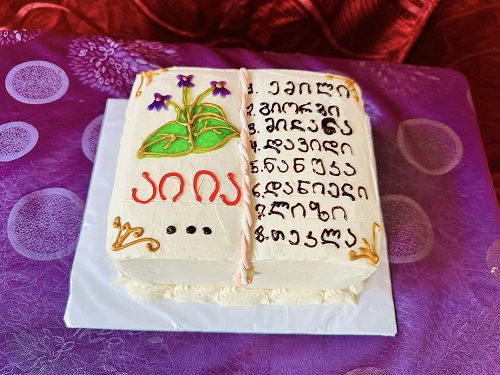 აი ია
...
1. ემილი
2. გიორგი
3. მილანა
4. დავიდი
5. ნანუკა
6. დანიელი
7. ლიზი
8. თეკლა